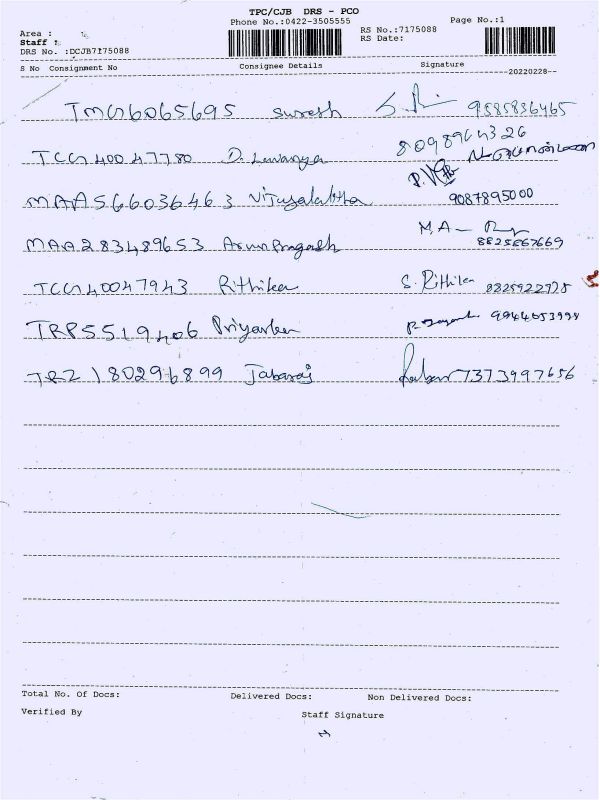 TPC/CJB DRS - PCO
Phone No.:0422-3505555 Page No.:1
Area :
Staff :
RS No.:7175088
DRS No. :DCJB7175088 RS Date:
S No Consignment No Consignee Details Signature
--20220228--
TMG6065695 Suresh 9585836465
8098964326
TCG40047780 D. Lavanya
MAA566036463 Vijayalalitha 9087895000
MAA283489653 Arun Pragash M.A
8825667669
TCG40047943 Rithika S. Rithika 8825922978
TRP5519406 Priyanka 9944053998
TRZ180296899 Jabaraj 7373997656
Total No. Of Docs: Delivered Docs: Non Delivered Docs:
Verified By Staff Signature